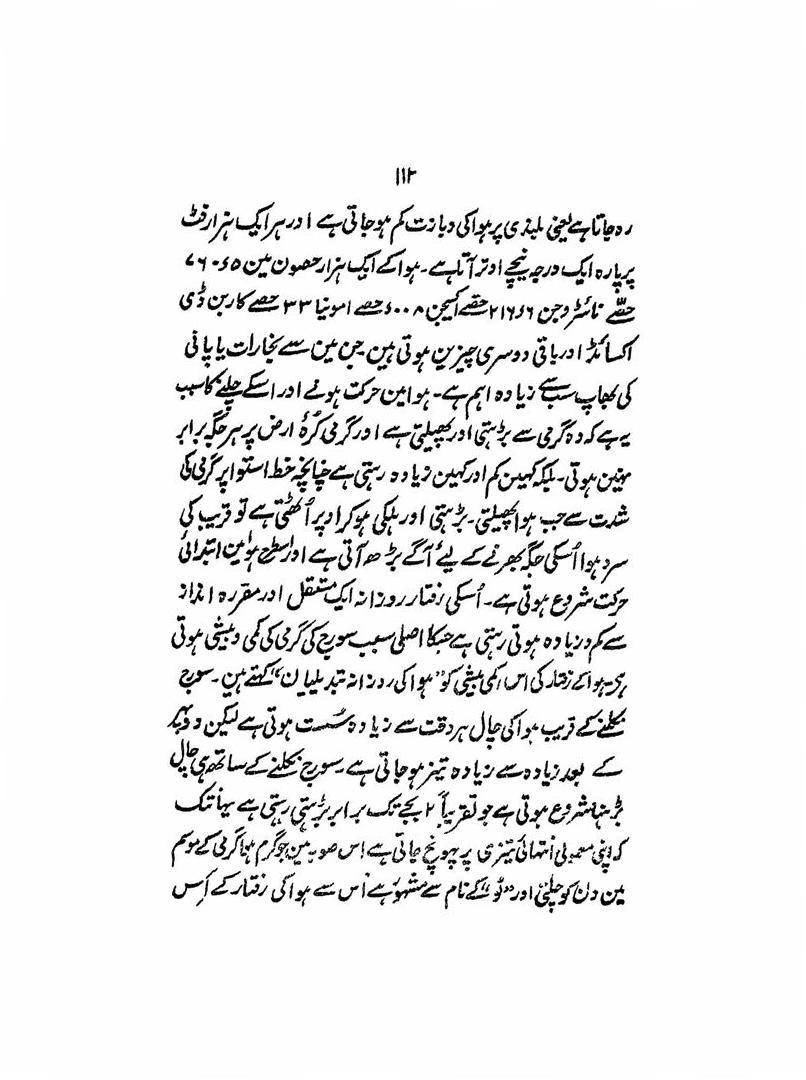 ۱۱۲
رہ جاتا ہے یعنی بلندی پر ہوا کی دبازت کم ہو جاتی ہے اور ہر ایک ہزار فٹ
پر پارہ ایک درجہ نیچے اوتر آتا ہے۔ ہوا کے ایک ہزار حصون مین
حصّے نائٹروجن حصے اکسیجن حصے امونیا ۳۳ حصے کاربن ڈی
اکسائڈ اور باقی دوسری چیزین ہوتی ہین جن مین سے بخارات یا پانی
کی بھاپ سب سے زیادہ اہم ہے۔ ہوا مین حرکت ہونے اور اسکے چلنے کا سبب
یہ ہے کہ وہ گرمی سے بڑہتی اور پھیلتی ہے اور گرمی کُرۂ ارض پر ہر جگہ برابر
نہین ہوتی۔ بلکہ کہین کم اور کہین زیادہ رہتی ہے چنانچہ خط استوا پر گرمی کی
شدت سے جب ہوا پھیلتی۔ بڑہتی اور ہلکی ہو کر اوپر اُٹھتی ہے تو قریب کی
سرد ہوا اُسکی جگہ بھرنے کے لیے آگے بڑھ آتی ہے اور اسطرح ہوا مین ابتدائی
حرکت شروع ہوتی ہے۔ اُسکی رفتار روزانہ ایک مستقل اور مقررہ انداز
سے کم و زیادہ ہوتی رہتی ہے جسکا اصلی سبب سورج کی گرمی کی کمی و بیشی ہوتی
ہی ہوا کے رفتار کی اس کمی بیشی کو "ہوا کی روزانہ تبدیلیان" کہتے ہین۔ سورج
نکلنے کے قریب ہوا کی چال ہر وقت سے زیادہ سُست ہوتی ہے لیکن دوپہر
کے بعد زیادہ سے زیادہ تیز ہو جاتی ہے۔ سورج نکلنے کے ساتھ ہی چال
بڑہنا شروع ہوتی ہے جو تقریباً ۲ بجے تک برابر بڑہتی رہتی ہے یہانتک
کہ اپنی معمولی انتہائی تیزی پر پہونچ جاتی ہے اس صوبہ مین جو گرم ہوا گرمی کے موسم
مین دن کو چلتی اور "لو" کے نام سے مشہور ہے اُس سے ہوا کی رفتار کے اس